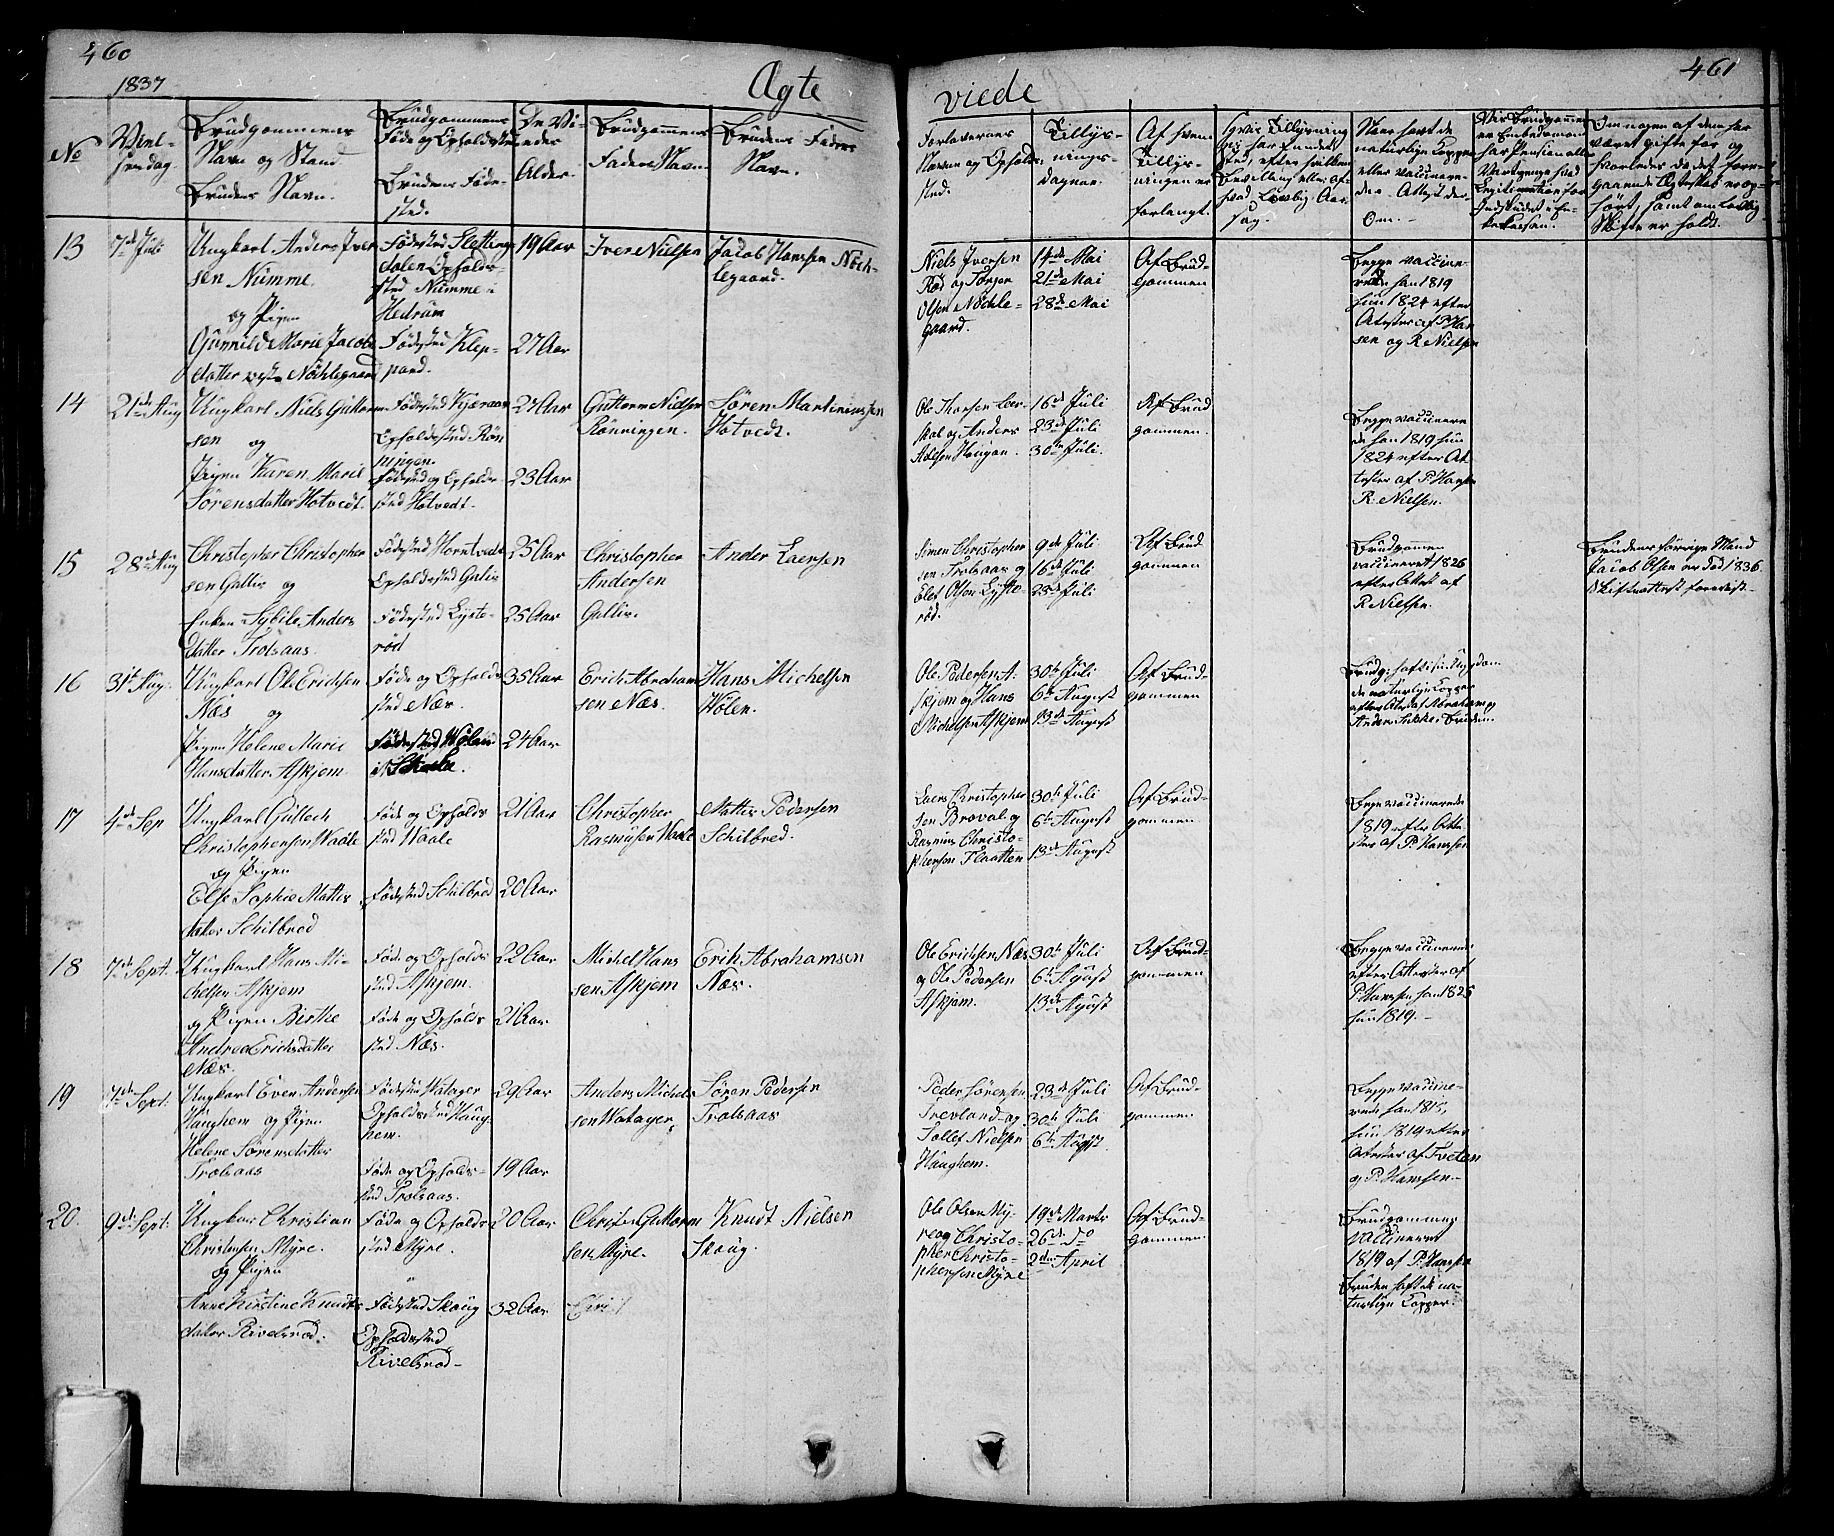 460
1837
Ægte
viede
461
No
Viel-
sesdag.
Brudgommens
Navn og Stand
Brudens Navn.
Brudgommens
Føde og Opholdssted
Brudens Føde-
sted.
De Vi-
edes
Alder.
Brudgommens
Faders Navn.
Brudens Faders
Navn.
Forlovernes
Navn og Opholds-
sted.
Tillys-
nings-
dagene.
Af hvem
Tillys-
ningen er
forlangt.
Naar havt de
naturlige Kopper
eller vaccinere-
de. Attest der-
om.
13
7de Juli
Ungkarl Anders Iver
sen Numme.
og Pigen
Gunnild Marie Jacobs
datter vestre Nöchlegaard
Födested Sletting
dalen Opholds-
sted Numme i
Hedrum
Födested Klep-
pand.
19 Aar
27 Aar
Iver Nielsen
Jacob Hanssen Nöch-
legaard.
Niels Iversen
Röd og Torger
Olsen Nöchle-
gaard.
14de Mai
21de Mai
28de Mai
Af Brud-
gommen
Begge vaccine-
rede han 1819
hun 1824 efter
Attester af P. Han
sen og R. Nielsen
14
21de Aug
Ungkarl Niels Guttorm
sen og
Pigen Karen Marie
Sörensdatter Hotvedt.
Födested Kjæraas
Opholdssted Rön
ningen.
Födested og Opholds
sted Hotvedt.
27 Aar
23 Aar
Guttorm Nielsen
Rönningen.
Sören Martiniussen
Hotvedt.
Ole Thorsen Leer-
skal og Anders
Adelsen Haugan.
16de Juli
23de Juli
30te Juli.
Af Brud
gommen.
Begge vaccinere
de han 1819 hun
1824 efter At
tester af P. Hansen
R. Nielsen.
15
28de Aug
Christopher Christopher
sen Gallis og
Enken Sybile Anders
datter Trolsaas.
Födested Horntvedt
Opholdssted Gallis
Födested Lyste-
röd
25 Aar
25 Aar
Christopher
Andersen
Gallis.
Ander Laersen
Simen Christopher
sen Trolsaas og
Elef Olsen Lyste-
röd.
9de Juli
16de Juli
23de Juli
Af Brud
gommen
Brudgommen
vaccineret 1826
efter Attest af
R. Nielsen.
Brudens forrige Mand
Jacob Olsen er död 1836.
Skifteattest foreviist.
16
31te Aug.
Ungkarl Ole Erichsen
Næs og
Pigen Helene Marie
Hansdatter Askjem
Föde og Opholds
sted Næs.
Födested Wölen
i Skee.
35 Aar
24 Aar
Erich Abraham
sen Næs.
Hans Michelsen
Wölen.
Ole Pedersen A-
skjem og Hans
Michelsen Askjem
30te Juli
6te August
13de August
Af Brud-
gommen
17
4de Sep
Ungkarl Gullech
Christophersen Waale
og Pigen
Else Sophie Matis
datter Schilbred
Föde og Opholds
sted Waale
Födested Schilbred
21 Aar
20 Aar
Christopher
Rasmusen Waale
Mattis Pedersen
Schilbred.
Laers Christopher
sen Broval og
Rasmus Christo-
phersen Flaatten
30te Juli
6te August
13de August
Af Brud-
gommen.
Begge vaccinerede
1819 efter Atte
ster af P. Hanssen
18
7de Sept.
Ungkarl Hans Mi-
chelsen Askjem
og Pigen Birthe
Andrea Erichsdatter
Næs.
Föde og Opholds
sted Askjem.
Föde og Opholds
sted Næs.
22 Aar
21 Aar.
Michel Hans
sen Askjem
Erich Abrahamsen
Næs.
Ole Erichsen Næs
og Ole Pedersen
Askjem.
30te Juli
6te August
13de August
Af Brud-
gommen.
Begge vaccinerede
efter Attester af
P. Hanssen han 1825
hun 1819.
19
7de Sept.
Ungkarl Even Andersen
Haughem og Pigen
Helene Sörensdatter
Trolsaas
Födested Watager
Opholdssted Haug
hem.
Föde og Opholds-
sted Trolsaas.
29 Aar
19 Aar
Anders Michels
sen Watager.
Sören Pedersen
Trolsaas
Peder Sörensen
Trevland og
Tollef Nielsen
Haughem.
23de Juli
30te Juli
6te August.
Af Brud-
gommen.
Begge vaccine-
rede han 1815,
hun 1819 efter
Attester af Tvetan
og P. Hanssen.
20.
9de Sept.
Ungkar Christian
Christensen Myre.
og Pigen
Anne Kirstine Knudts
datter Rivelsrød.
Föde og Opholds
sted Myre.
Födested Skoug
Opholdssted
Rivelsrød
20 Aar
32 Aar
Christen Guttorm
sen Myre.
Knudt Nielsen
Skoug.
Ole Olsen My-
re og Christo-
pher Christo-
phersen Myre
19de Marts
26de do
2den April
Af Brud-
gommen.
Brudgommen
vaccineret
1819 af P. Hanssen
Bruden havt de na-
turlige Kopper.